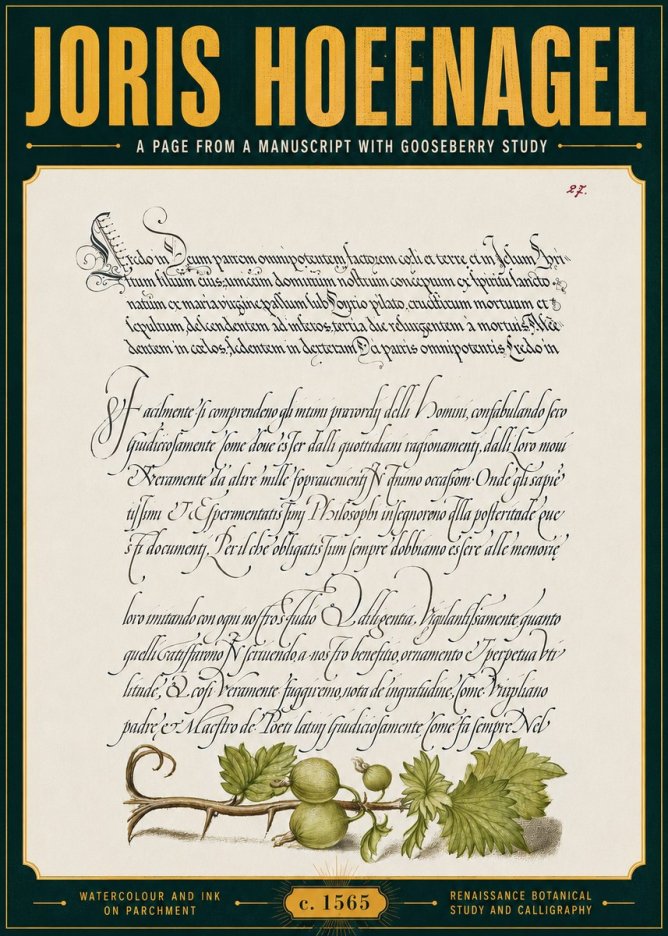 JORIS HOEFNAGEL
A PAGE FROM A MANUSCRIPT WITH GOOSEBERRY STUDY
27.
Credo in Deum patrem omnipotentem factorem cœli et terre et in Jesum Chri-
stum filium eius, unicum dominum nostrum conceptum ex spiritu sancto
natum ex maria virgine, passum sub Pontio pilato, crucifixum mortuum et
sepultum, descendentem ad inferos, tertia die resurgentem à mortuis, Asce
dentem in cœlos, sedentem in dexteram Dei patris omnipotentis, Credo in
Facilmente si comprendeno gli intimi præcordij delli Homini, confabulando seco
giudiciosamente Come doue esser dalli quottidiani ragionamenti, dalli loro moui
Et veramente da altre mille soprauenienti occasom. Onde gli sapie
tissimi Et Espermentatissimj Philosophi insegnoreno alla posteritade que
sti documenti, Per il che obligatissum sempre dobbiamo essere alle memorie
loro imitando con ogni nostro studio Et diligentia, Vigilantissamente quanto
quelli scriuendo, a nostro benefitio, ornamento Et perpetua vti
litude, Et cosi Veramente fuggiremo, nota de ingratitudine, Come Virgiliano
padre et Maestro de Poeti latinj giudiciosamente Come fa sempre Nel
WATERCOLOUR AND INK
ON PARCHMENT
c. 1565
RENAISSANCE BOTANICAL
STUDY AND CALLIGRAPHY